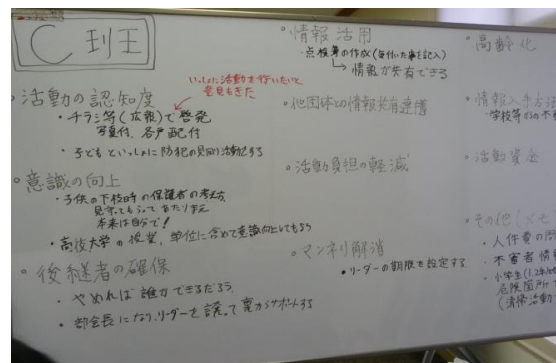 C 班
・活動の認知度
・チラシ等(広報)で啓発
写真付、各戸配付
いっしょに活動を行いたいと
意見もきた
・子どもといっしょに防犯の見回り活動をする
・意識の向上
・子供の下校時の保護者の考え方
見守ってもらってあたりまえ
本来は自分で!
・高校大学の授業、単位に含めて意識向上してもらう
・後継者の確保
・やめれば誰かできるだろう
・部会長になり、リーダーを譲って裏からサポートする
・情報活用
・点検簿の作成(気付いた事を記入)
→情報が共有できる
・他団体との情報共有連携
・活動負担の軽減
・マンネリ解消
・リーダーの期限を設定する
・高齢化
・情報入手方法
・学校等からの不審
・活動資金
・その他(メモ
・人件費の
・不審者情報
・小学生(1.2年
危険箇所
(清掃活動